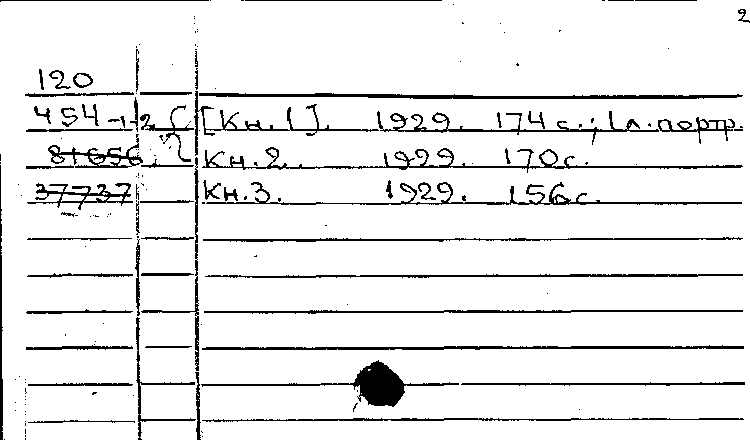 2
120
454-1-2 [Кн. 1]. 1929. 174 с.; 1 л. портр.
81656 Кн. 2. 1929. 170 с.
37737 Кн. 3. 1929. 156 с.